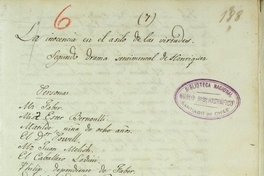 6 (7) 188
La inocencia en el asilo de las virtudes.
Segundo drama sentimental de Henriquez
Personas
Mr. Faber.
Ester Bernoulli
Matilde, niña de ocho años.
El Dr. Powell.
Mr. Juan
El Caballero
Philip, dependiente de Faber.
BIBLIOTECA NACIONAL
SANTIAGO DE CHILE